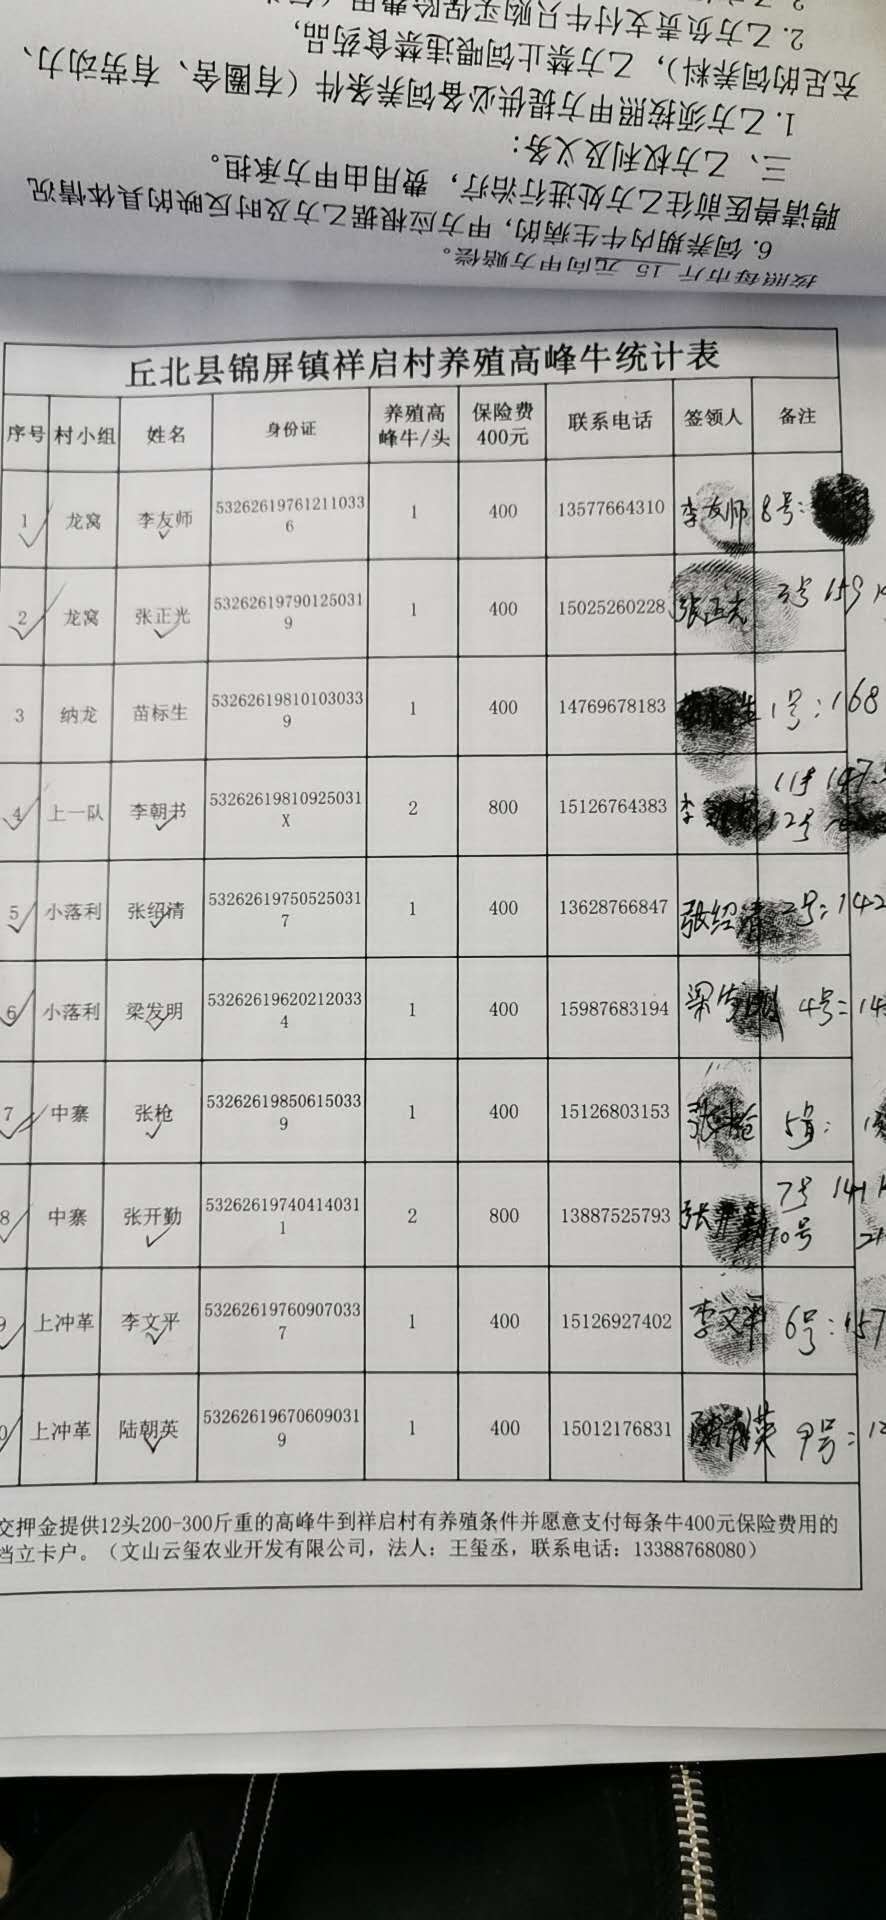 按照每市斤 15 元向甲方赔偿。
6. 饲养期内牛生病的，甲方应根据乙方及时反映的具体情况
聘请兽医前往乙方处进行治疗，费用由甲方承担。
三、乙方权利及义务：
1. 乙方须按照甲方提供必备饲养条件（有圈舍、有劳动力、
充足的饲养料），乙方禁止饲喂违禁食药品，
2. 乙方负责支付牛只购买保险费用（
丘北县锦屏镇祥启村养殖高峰牛统计表
序号 村小组 姓名 身份证 养殖高峰牛/头 保险费400元 联系电话 签领人 备注
1 龙窝 李友师 532626197612110336 1 400 13577664310 李友师 8号:
2 龙窝 张正光 532626197901250319 1 400 15025260228 张正光 3号 159
3 纳龙 苗标生 532626198101030339 1 400 14769678183 1号: 168
4 上一队 李朝书 53262619810925031X 2 800 15126764383 李 11号 147
12号
5 小落利 张绍清 532626197505250317 1 400 13628766847 张绍清 2号: 142
6 小落利 梁发明 532626196202120334 1 400 15987683194 梁发明 4号:
7 中寨 张枪 532626198506150339 1 400 15126803153 张枪 5号:
8 中寨 张开勤 532626197404140311 2 800 13887525793 张开勤 7号 141
10号
9 上冲革 李文平 532626197609070337 1 400 15126927402 李文平 6号: 157
0 上冲革 陆朝英 532626196706090319 1 400 15012176831 陆朝英 9号:
交押金提供12头200-300斤重的高峰牛到祥启村有养殖条件并愿意支付每条牛400元保险费用的
档立卡户。（文山云玺农业开发有限公司，法人：王玺丞，联系电话：13388768080）